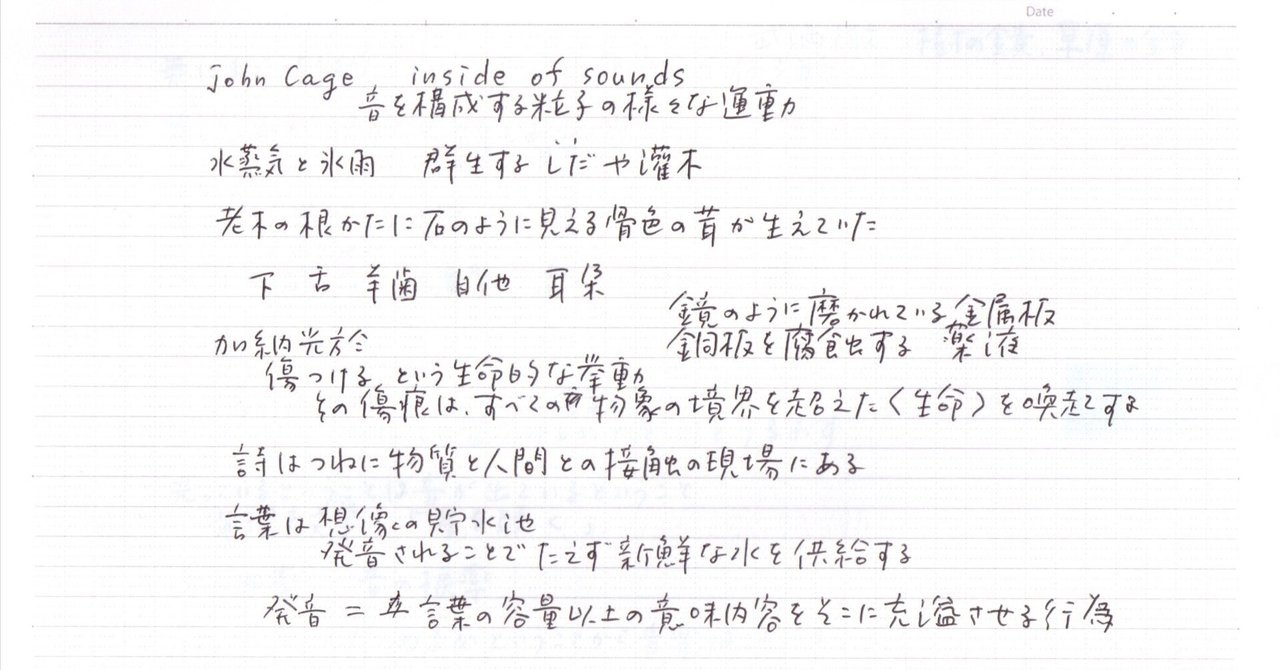 Date
john Cage inside of sounds
音を構成する粒子の様々な運動
水蒸気と氷雨 群生するしだや灌木
老木の根かたに石のように見える骨色の茸が生えていた
下 舌 羊歯 自他 耳朶
鏡のように磨かれている金属板
銅板を腐蝕する 薬液
加納光於
傷つける という生命的な挙動
その傷痕は、すべての物象の境界を超えた〈生命〉を喚起する
詩はつねに物質と人間との接触の現場にある
言葉は想像の貯水池
発音されることでたえず新鮮な水を供給する
発音 = 言葉の容量以上の意味内容をそこに充溢させる行為